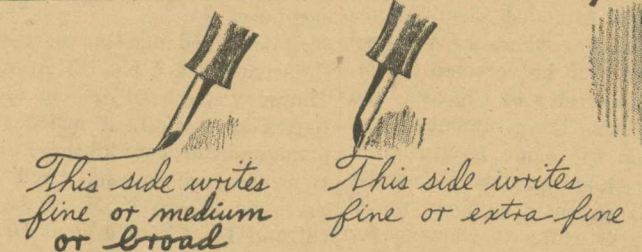 This side writes
fine or medium
or broad
This side writes
fine or extra fine